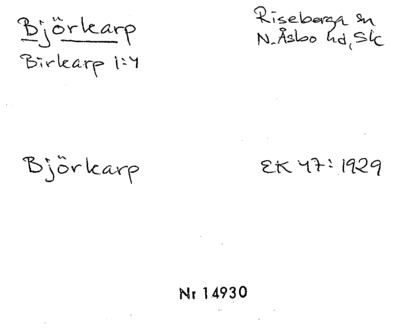 Björkarp
Riseberga sn
Birkarp 1:4
N. Åsbo hd, Sk
Björkarp
EK 47: 1929
Nr 14930